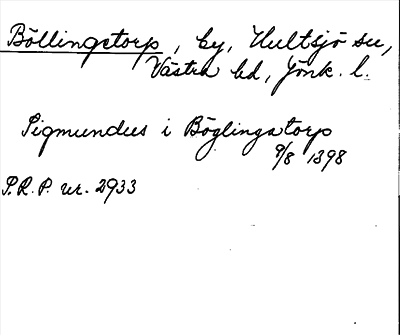 Böllingetorp, by, Hultsjö sn,
Västra hd, Jönk. l.
Sigmundus i Böglingatorp
9/8 1398
S.R.P. nr. 2933